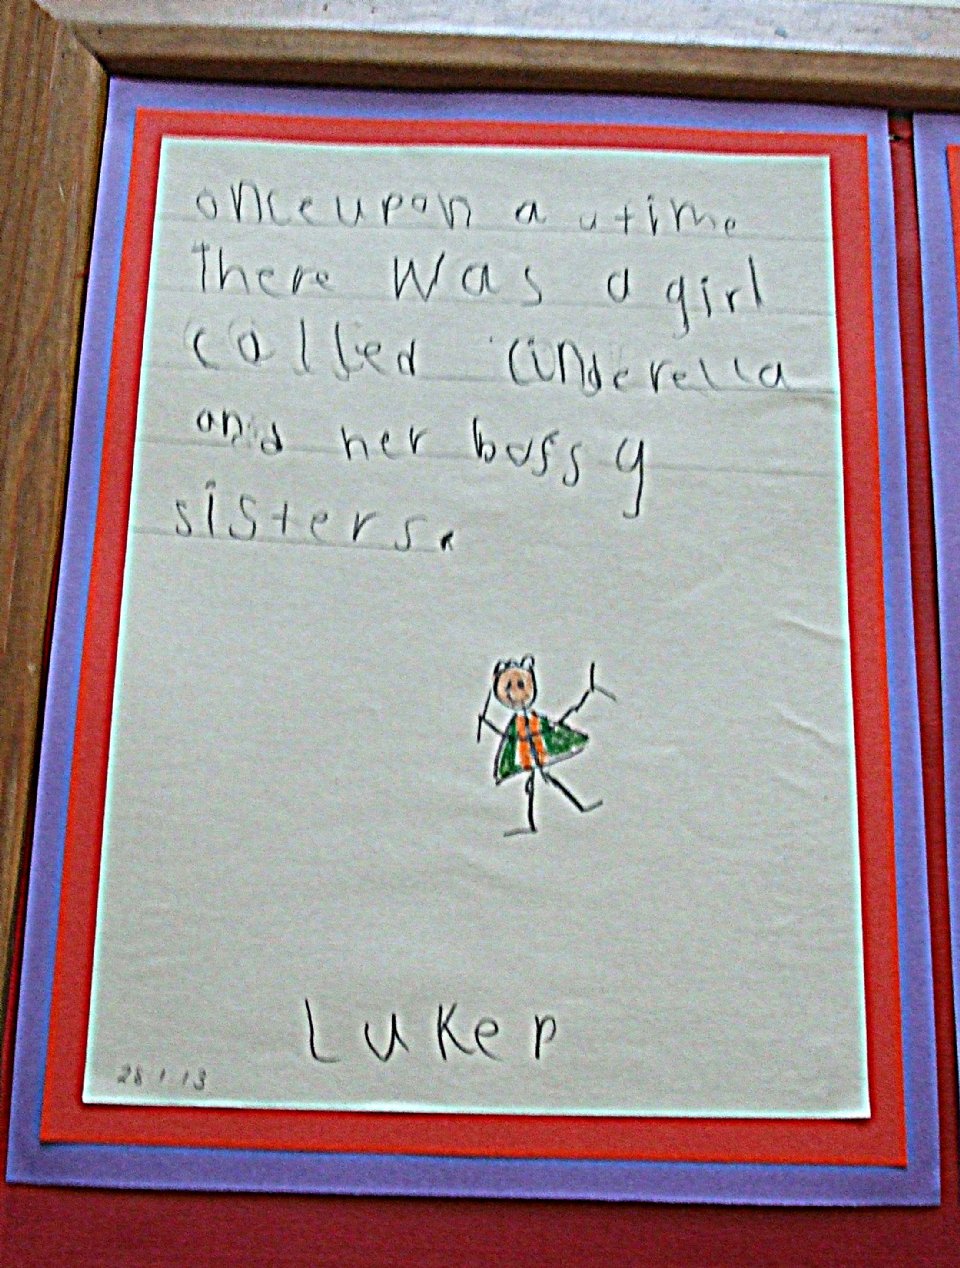 onceupon a utime
There Was a girl
called cinderella
and her bossy
sisters.
Luke p
28.1.13